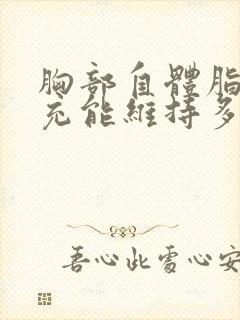 胸部自體脂
充能維持多
吾心此處心安